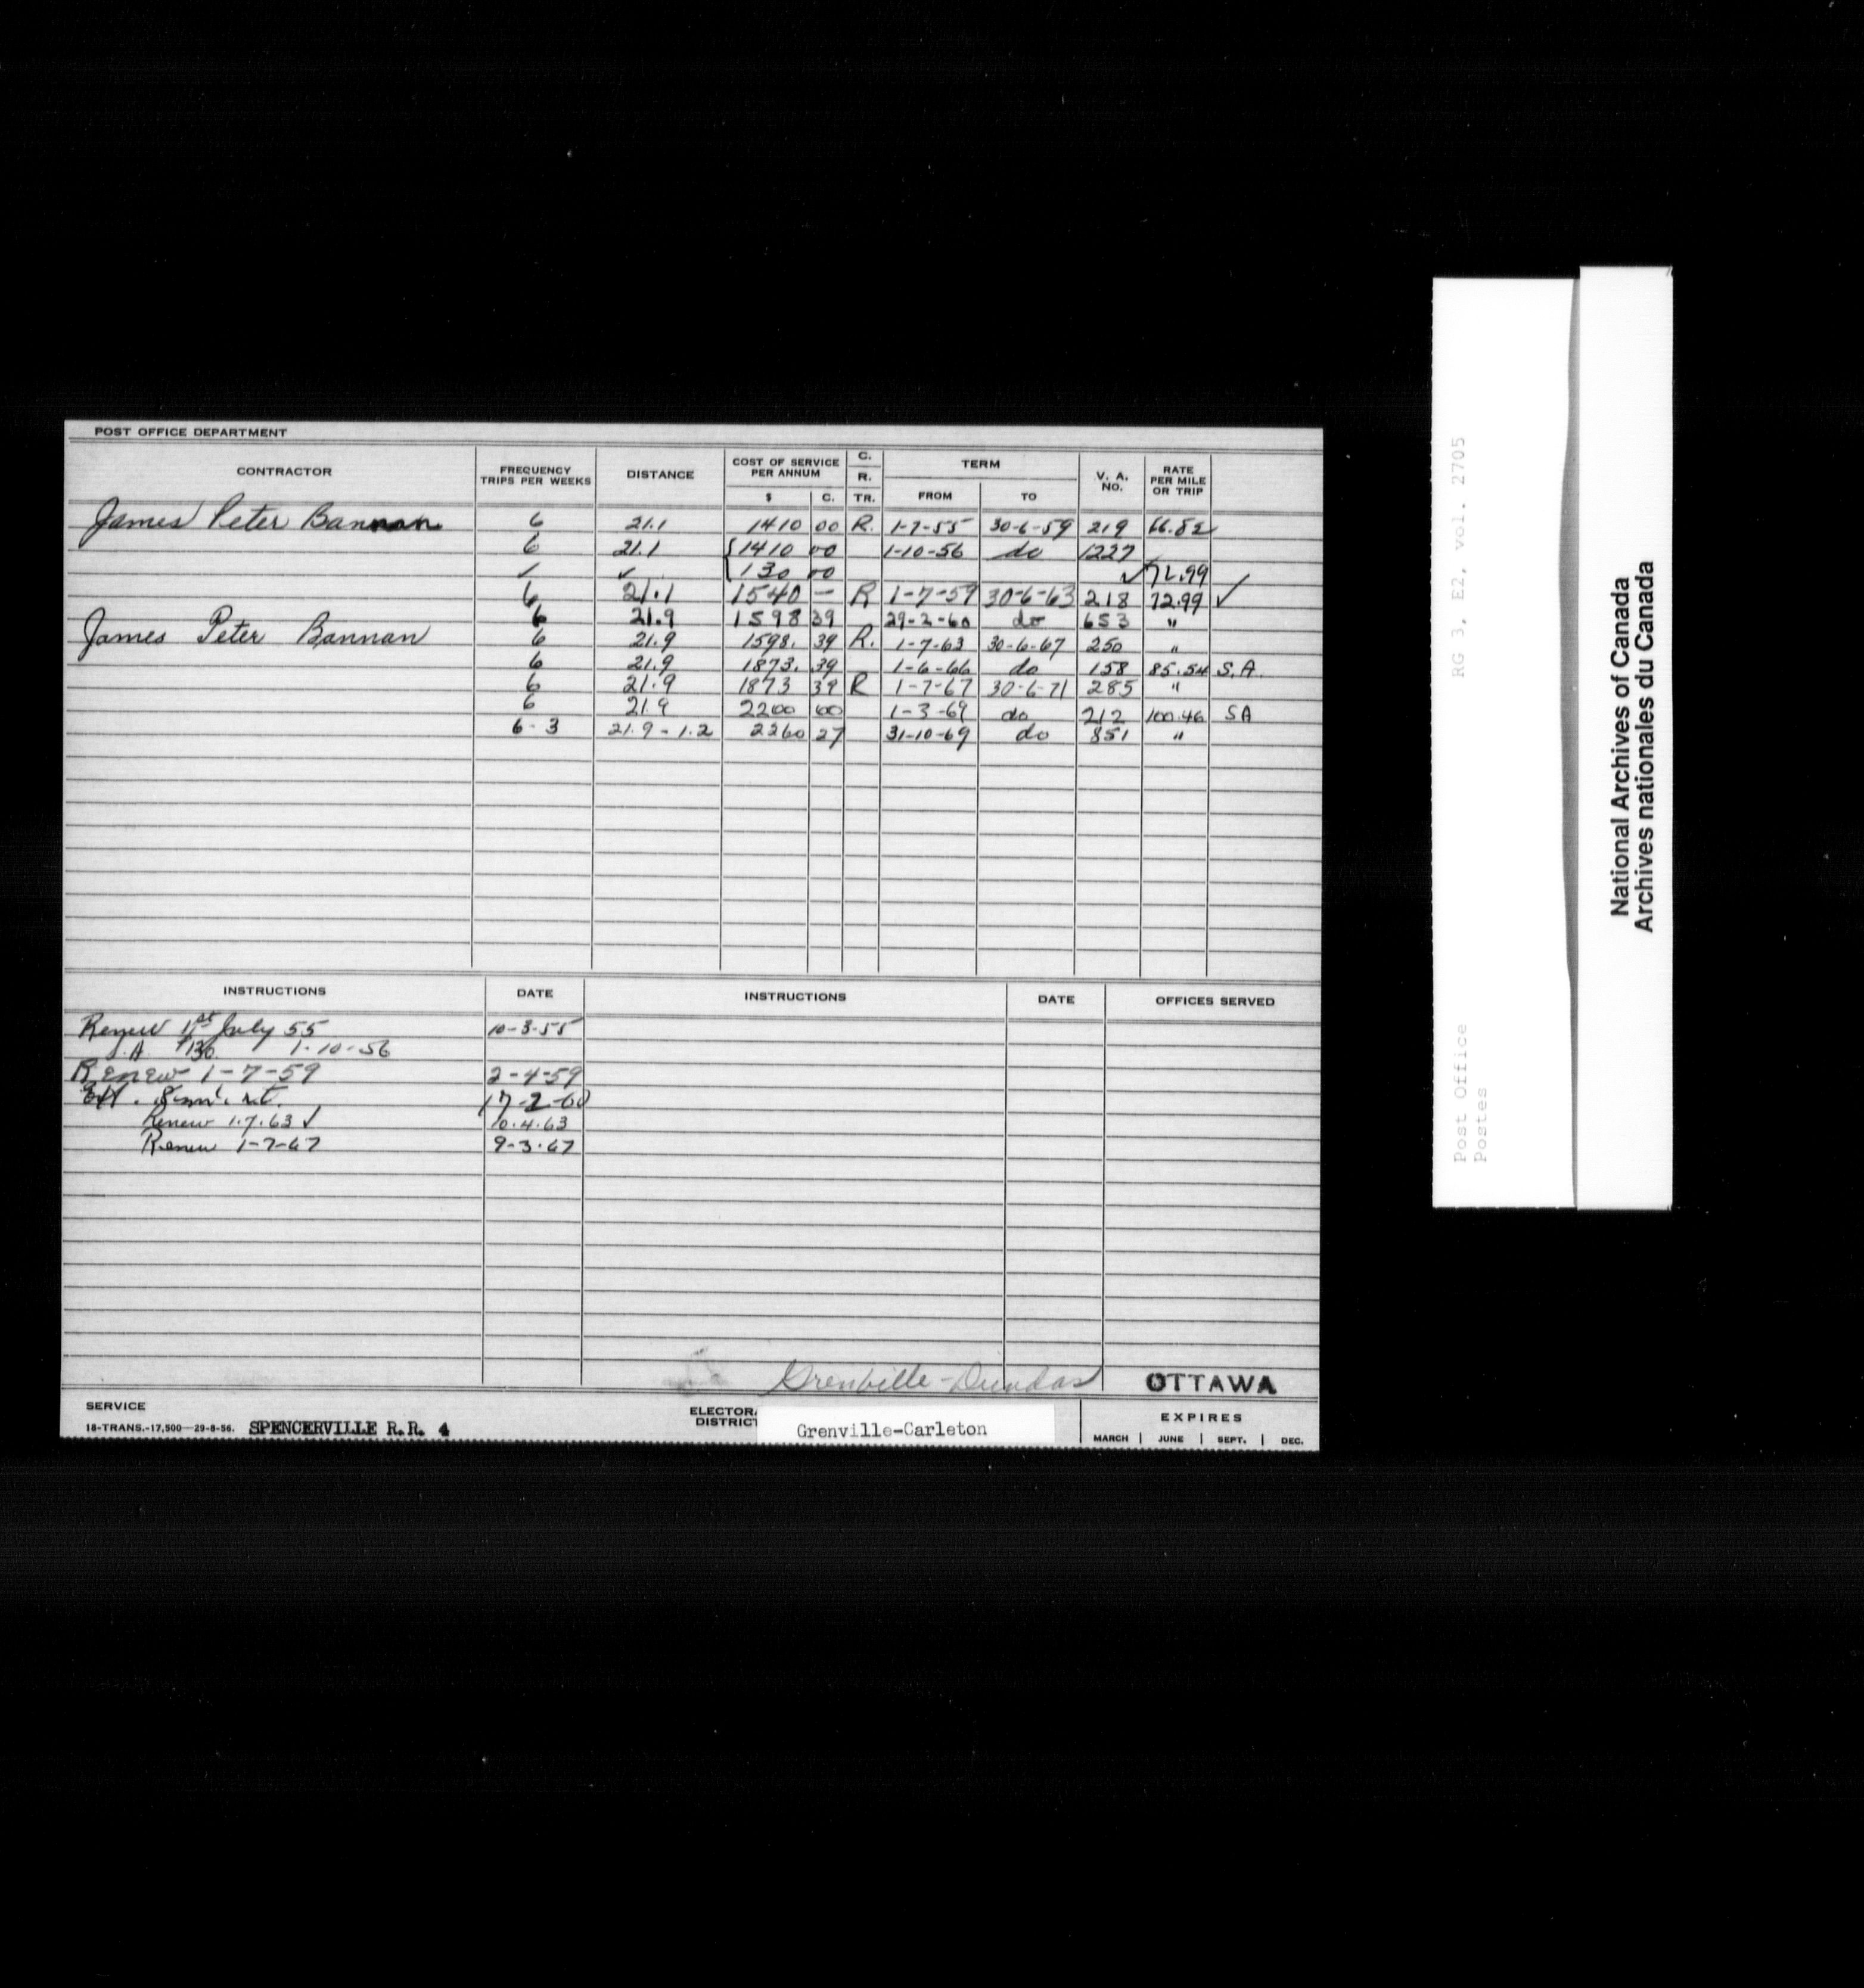 POST OFFICE DEPARTMENT
CONTRACTOR FREQUENCY TRIPS PER WEEKS DISTANCE COST OF SERVICE PER ANNUM $ C. C. R. TR. TERM FROM TO V. A. NO. RATE PER MILE OR TRIP
James Peter Bannan 6 21.1 1410 00 R. 1-7-55 30-6-59 219 66.82
6 21.1 { 1410 00 1-10-56 do 1227
✓ ✓ { 130 00 ✓ 72.99
6 21.1 1540 — R 1-7-59 30-6-63 218 72.99 ✓
6 21.9 1598 39 29-2-60 do 653 "
James Peter Bannan 6 21.9 1598. 39 R. 1-7-63 30-6-67 250 "
6 21.9 1873. 39 1-6-66 do 158 85.54 S.A.
6 21.9 1873 39 R 1-7-67 30-6-71 285 "
6 21.9 2200 00 1-3-69 do 212 100.46 SA
6-3 21.9-1.2 2260 27 31-10-69 do 851 "
INSTRUCTIONS DATE INSTRUCTIONS DATE OFFICES SERVED
Renew 1st July 55 10-3-55
S.A. $130. 1-10-56
Renew 1-7-59 2-4-59
17-2-60
Renew 1.7.63 ✓ 10.4.63
Renew 1-7-67 9-3-67
Grenville-Dundas OTTAWA
SERVICE
18-TRANS.-17,500—29-8-56. SPENCERVILLE R.R. 4
ELECTORA
DISTRICT
Grenville-Carleton
EXPIRES
MARCH | JUNE | SEPT. | DEC.
RG 3, E2, vol. 2705
Post Office
Postes
National Archives of Canada
Archives nationales du Canada